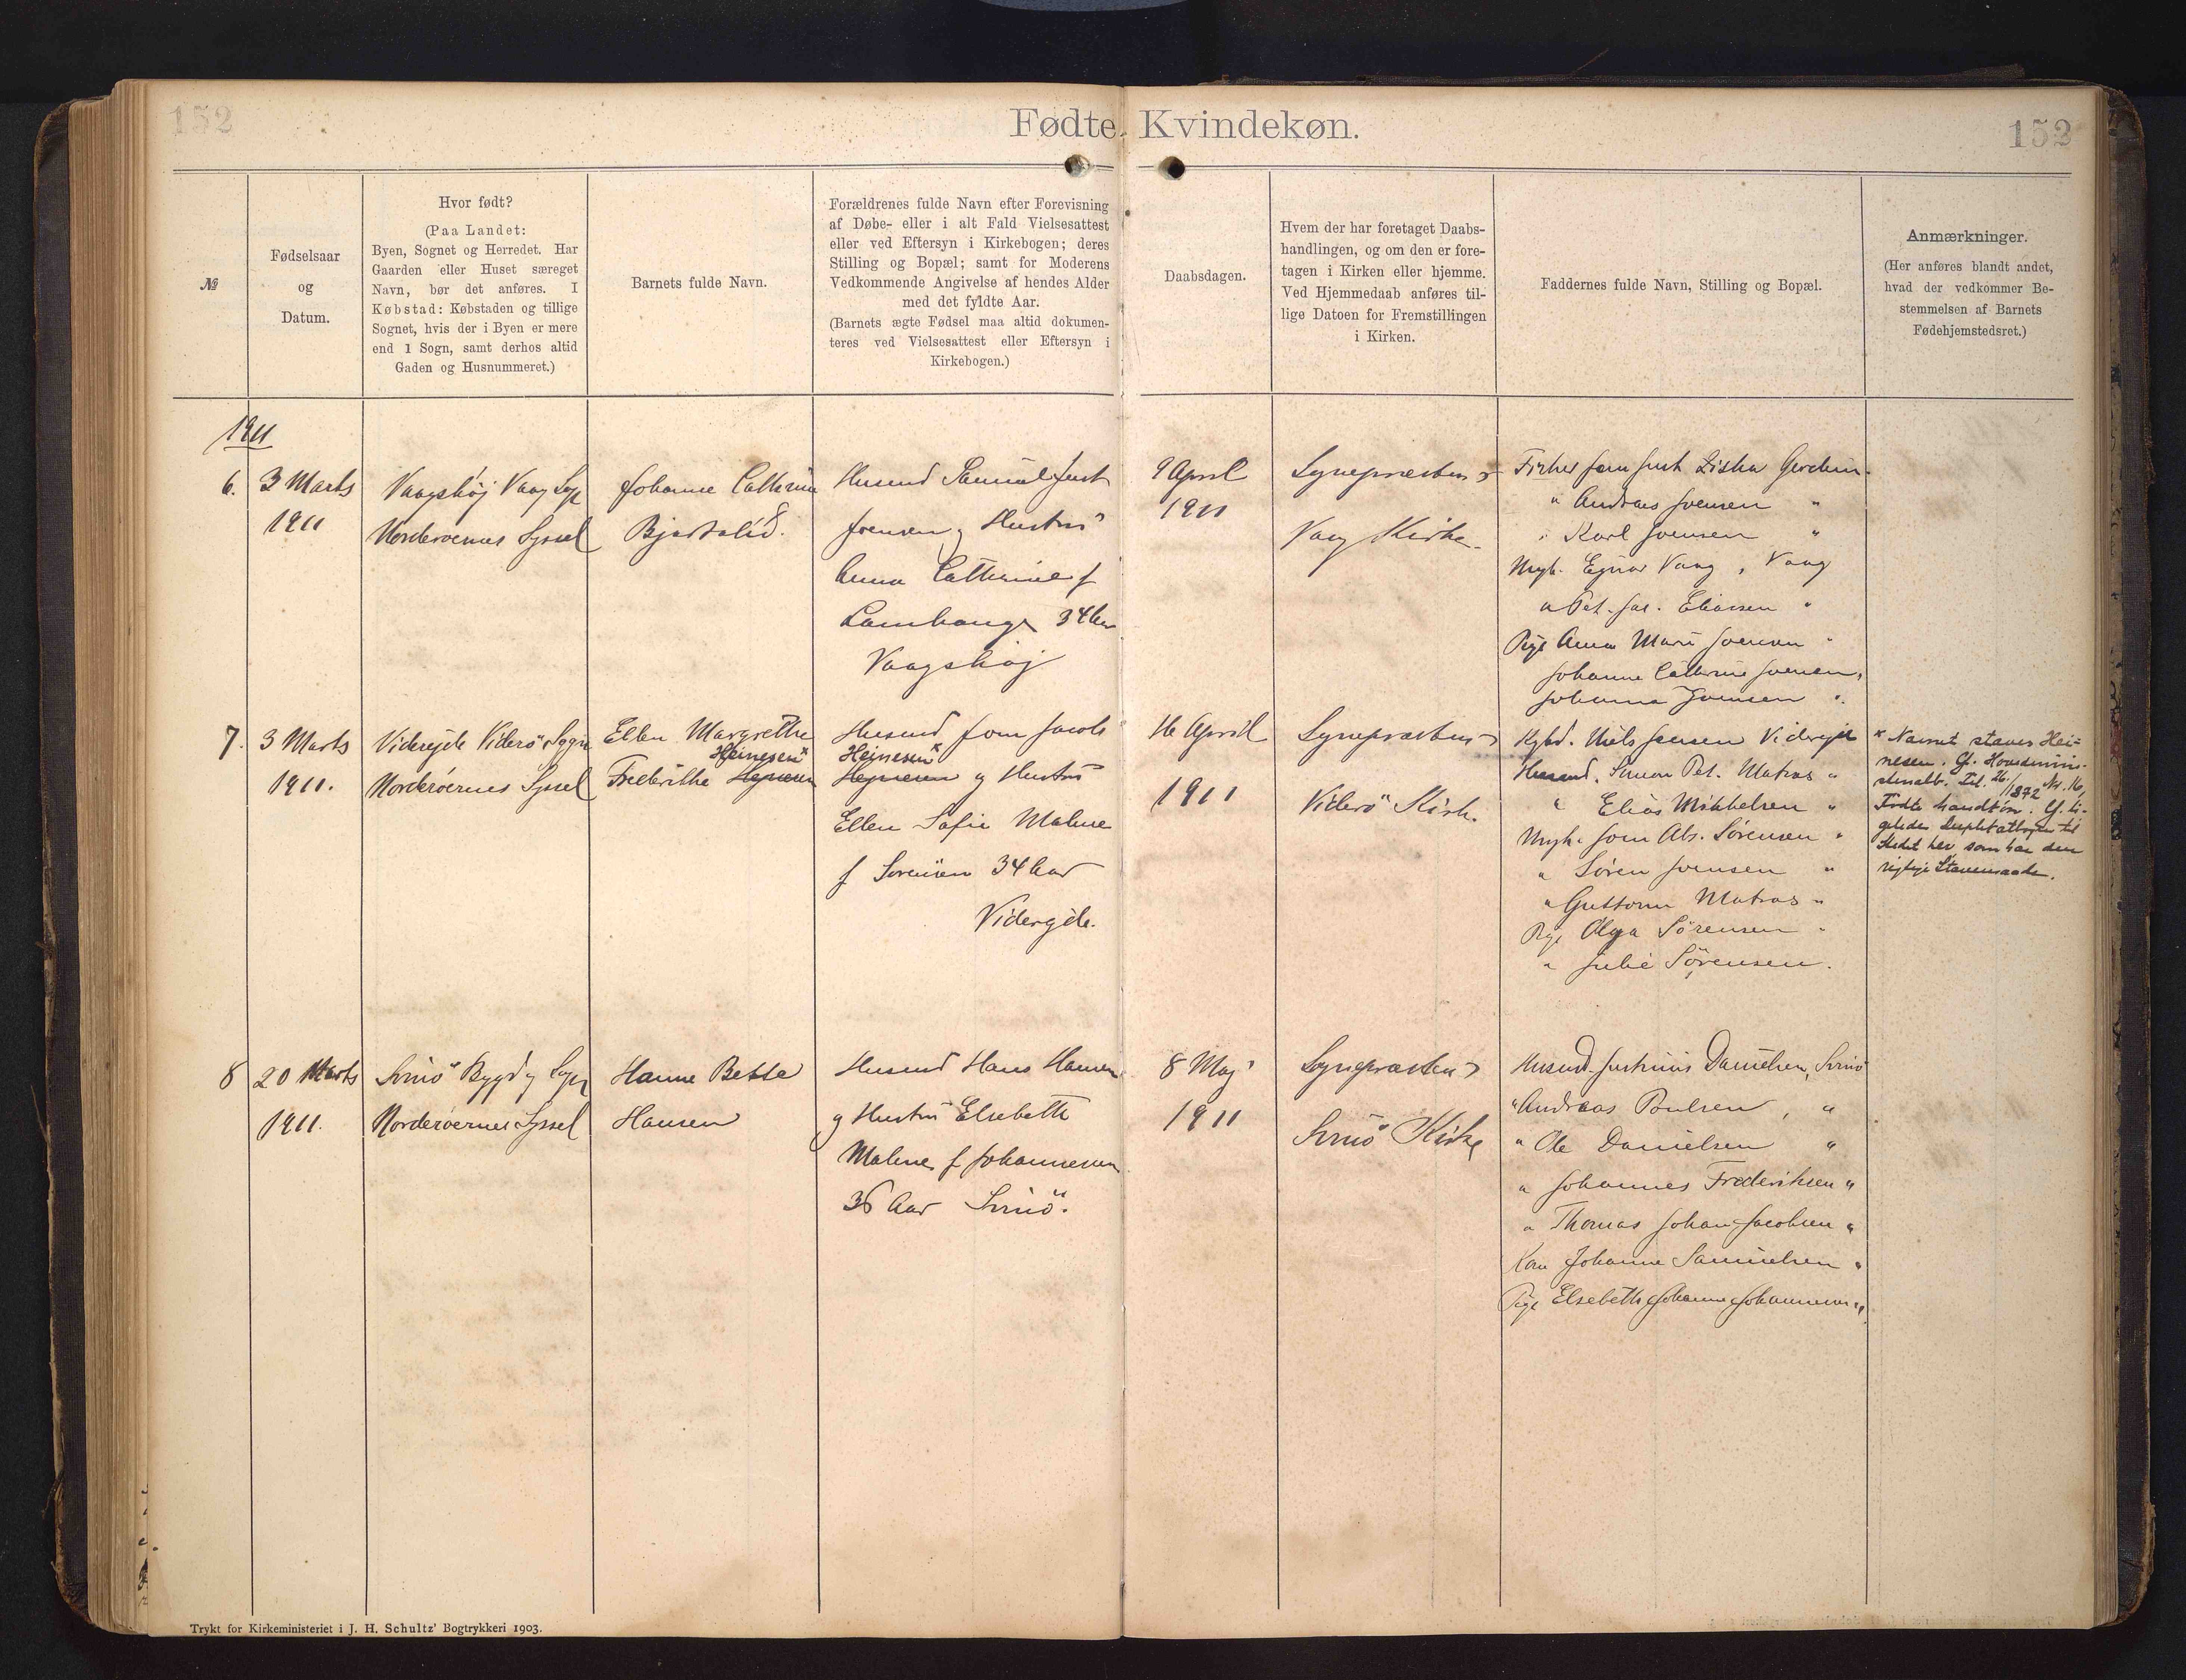 152
Fødte Kvindekøn.
152
№
Fødselsaar
og
Datum.
Hvor født?
(Paa Landet:
Byen, Sognet og Herredet. Har
Gaarden eller Huset særeget
Navn, bør det anføres. I
Købstad: Købstaden og tillige
Sognet, hvis der i Byen er mere
end 1 Sogn, samt derhos altid
Gaden og Husnummeret.)
Barnets fulde Navn.
Forældrenes fulde Navn efter Forevisning
af Døbe- eller i alt Fald Vielsesattest
eller ved Eftersyn i Kirkebogen; deres
Stilling og Bopæl; samt for Moderens
Vedkommende Angivelse af hendes Alder
med det fyldte Aar.
(Barnets ægte Fødsel maa altid dokumen-
teres ved Vielsesattest eller Eftersyn i
Kirkebogen.)
Daabsdagen.
Hvem der har foretaget Daabs-
handlingen, og om den er fore-
tagen i Kirken eller hjemme.
Ved Hjemmedaab anføres til-
lige Datoen for Fremstillingen
i Kirken.
Faddernes fulde Navn, Stilling og Bopæl.
Anmærkninger.
(Her anføres blandt andet,
hvad der vedkommer Be-
stemmelsen af Barnets
Fødehjemstedsret.)
1911
6.
3 Marts
1911
Vaagshøj Vaag Sogn
Norderøernes Syssel
Johanne Cathrine
Bjartalíð.
Husmd Samuel Just
Joensen og Hustru
Anna Cathrine f
Lamhauge 34 Aar
Vaagshøj
9 April
1911
Sognepræsten i
Vaag Kirke.
" Andreas Joensen "
" Karl Joensen "
Ungk. Ejnar Vaag, Vaag
" Pet. Jac. Eliasen "
Pige Anna Marie Joensen "
Johanne Cathrine Joensen "
Johanna Joensen "
7.
3 Marts
1911.
Viderejde Viderø Sogn
Norderøernes Syssel
Ellen Margrethe
Heinesen*
Frederikke Hejnesen
Husmd Joen Jacob
Heinesen*
Hejnesen og Hustru
Ellen Sofie Malene
f Sørensen 34 Aar
Viderejde.
16 April
1911
Sognepræsten i
Viderø Kirke.
Kgbd. Niels Jensen Viderejde
Husmd. Simon Pet. Matras "
" Elias Mikkelsen "
Ungk. Joen Abs. Sørensen "
" Søren Joensen "
" Guttorm Matras "
Pige Olga Sørensen "
" Julie Sørensen.
* Navnet staves Hei-
nesen. Cf. Hovedmini-
sterialb. Fol. 26. 1872 Nr. 16,
Fødte Mandkøn. Cf. li-
geledes Duplikatbogen til
Stedet her som har den
rigtige Stavemaade.
8
20 Marts
1911.
Svinø Bygd og Sogn
Norderøernes Syssel
Hanne Betse
Hansen
Husmd Hans Hansen
og Hustru Elsebeth
Malene f Johannesen
36 Aar Svinø.
8 Maj
1911
Sognepræsten i
Svinø Kirke
Husmd. Justinus Danielsen, Svinø
" Andreas Poulsen, "
" Ole Danielsen "
" Johannes Frederiksen "
" Thomas Johan Jacobsen "
Kone Johanne Samuelsen "
Pige Elsebeth Johanne Johannesen "
Trykt for Kirkeministeriet i J. H. Schultz' Bogtrykkeri 1903.